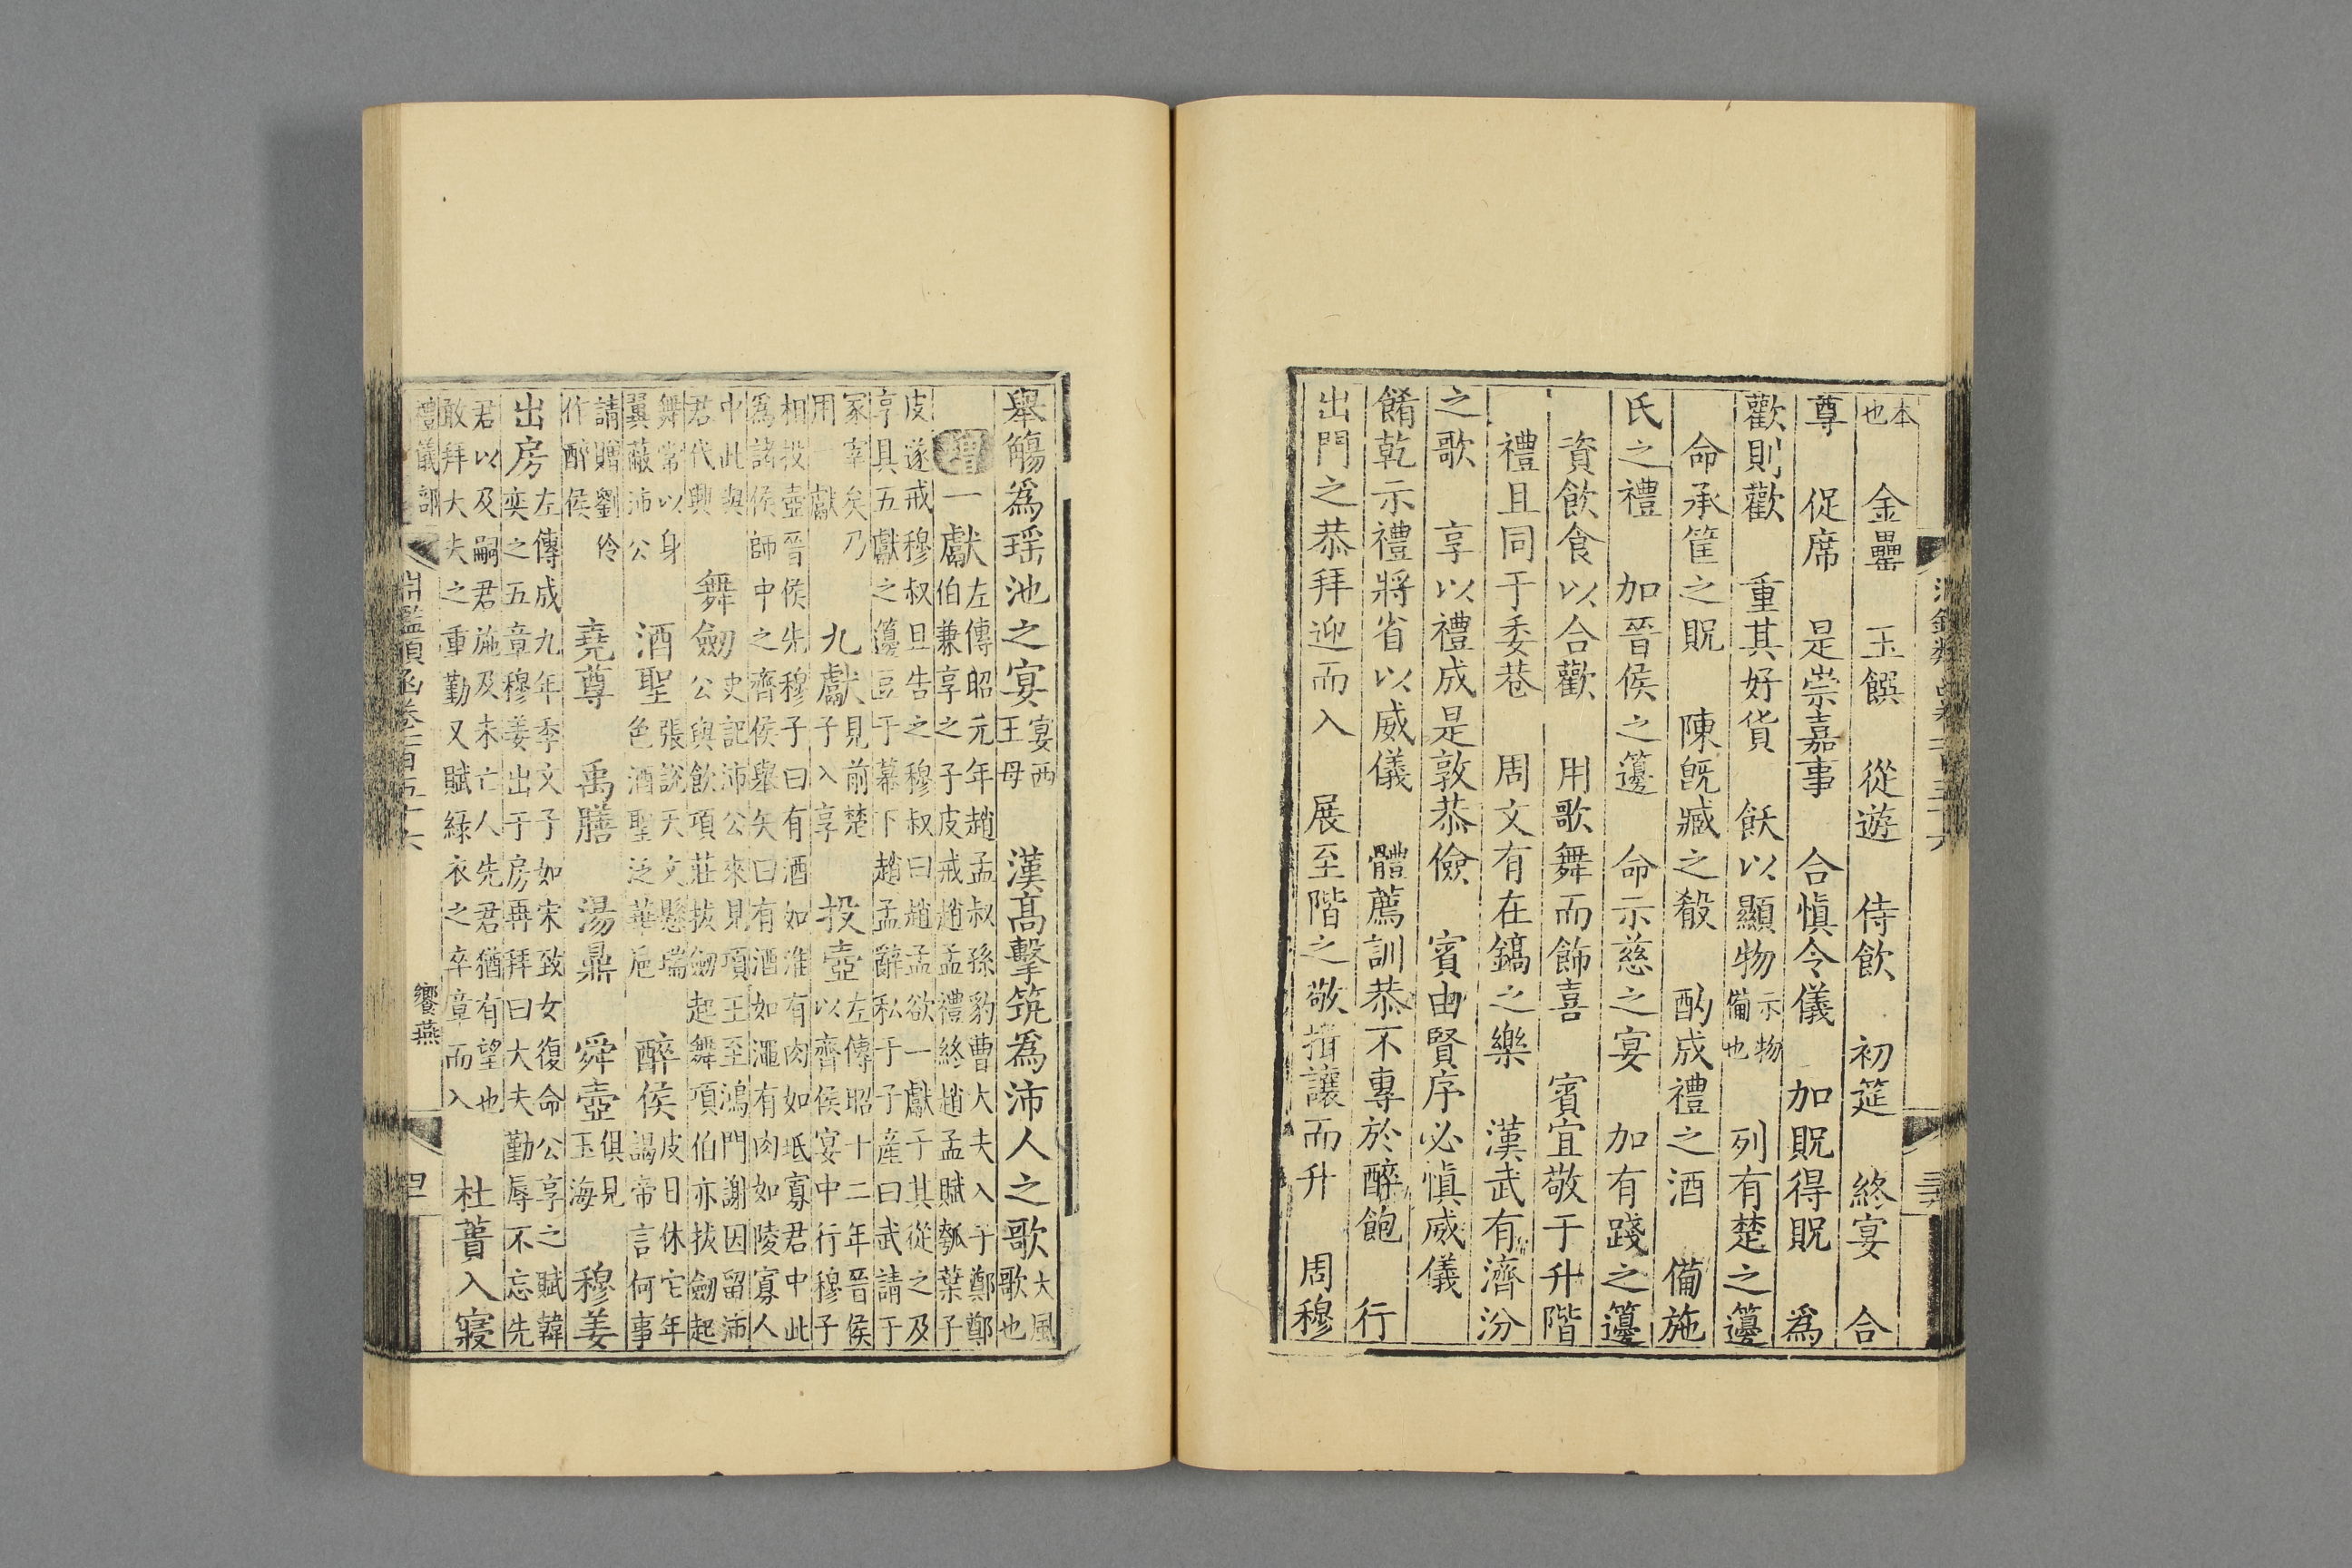 本也　金罍　玉饌　從遊　侍飲　初筵　終宴　合
尊　促席　是崇嘉事　合慎令儀　加貺得貺　為
歡則歡　重其好貨　飫以顯物示物備也　列有楚之籩
命承筐之貺　陳旣臧之殽　酌成禮之酒　備施
氏之禮　加晉侯之籩　命示慈之宴　加有踐之籩
資飲食以合歡　用歌舞而飾喜　賓宜敬于升階
禮且同于委巷　周文有在鎬之樂　漢武有濟汾
之歌　享以禮成是敦恭儉　賓由賢序必慎威儀
餚乾示禮將省以威儀　體薦訓恭不專於醉飽　行
出門之恭拜迎而入　展至階之敬揖讓而升　周穆
舉觴為瑤池之宴宴西王母　漢高擊筑為沛人之歌大風歌也
增一獻左傳昭元年趙孟叔孫豹曹大夫入于鄭鄭伯兼享之子皮戒趙孟禮終趙孟賦瓠葉子
皮遂戒穆叔且告之穆叔曰趙孟欲一獻于其從之及享具五獻之籩豆于幕下趙孟辭私于子產曰武請于
冢宰矣乃用一獻　九獻見前楚子入享　投壺左傳昭十二年晉侯以齊侯宴中行穆子
相投壺晉侯先穆子曰有酒如淮有肉如坻寡君中此為諸侯師中之齊侯舉矢曰有酒如澠有肉如陵寡人
中此與君代興　舞劒史記沛公來見項王至鴻門謝因留沛公與飲項莊拔劒起舞項伯亦拔劒起
舞常以身翼蔽沛公　酒聖張說天文懸瑞色酒聖泛華巵　醉侯皮日休它年謁帝言何事
請贈劉伶作醉侯　堯尊　禹膳　湯鼎　舜壺俱見玉海　穆姜
出房左傳成九年季文子如宋致女復命公享之賦韓奕之五章穆姜出于房再拜曰大夫勤辱不忘先
君以及嗣君施及未亡人先君猶有望也敢拜大夫之重勤又賦綠衣之卒章而入　杜蕢入寢
禮儀部　淵鑑類函卷一百五十六　饗燕　四